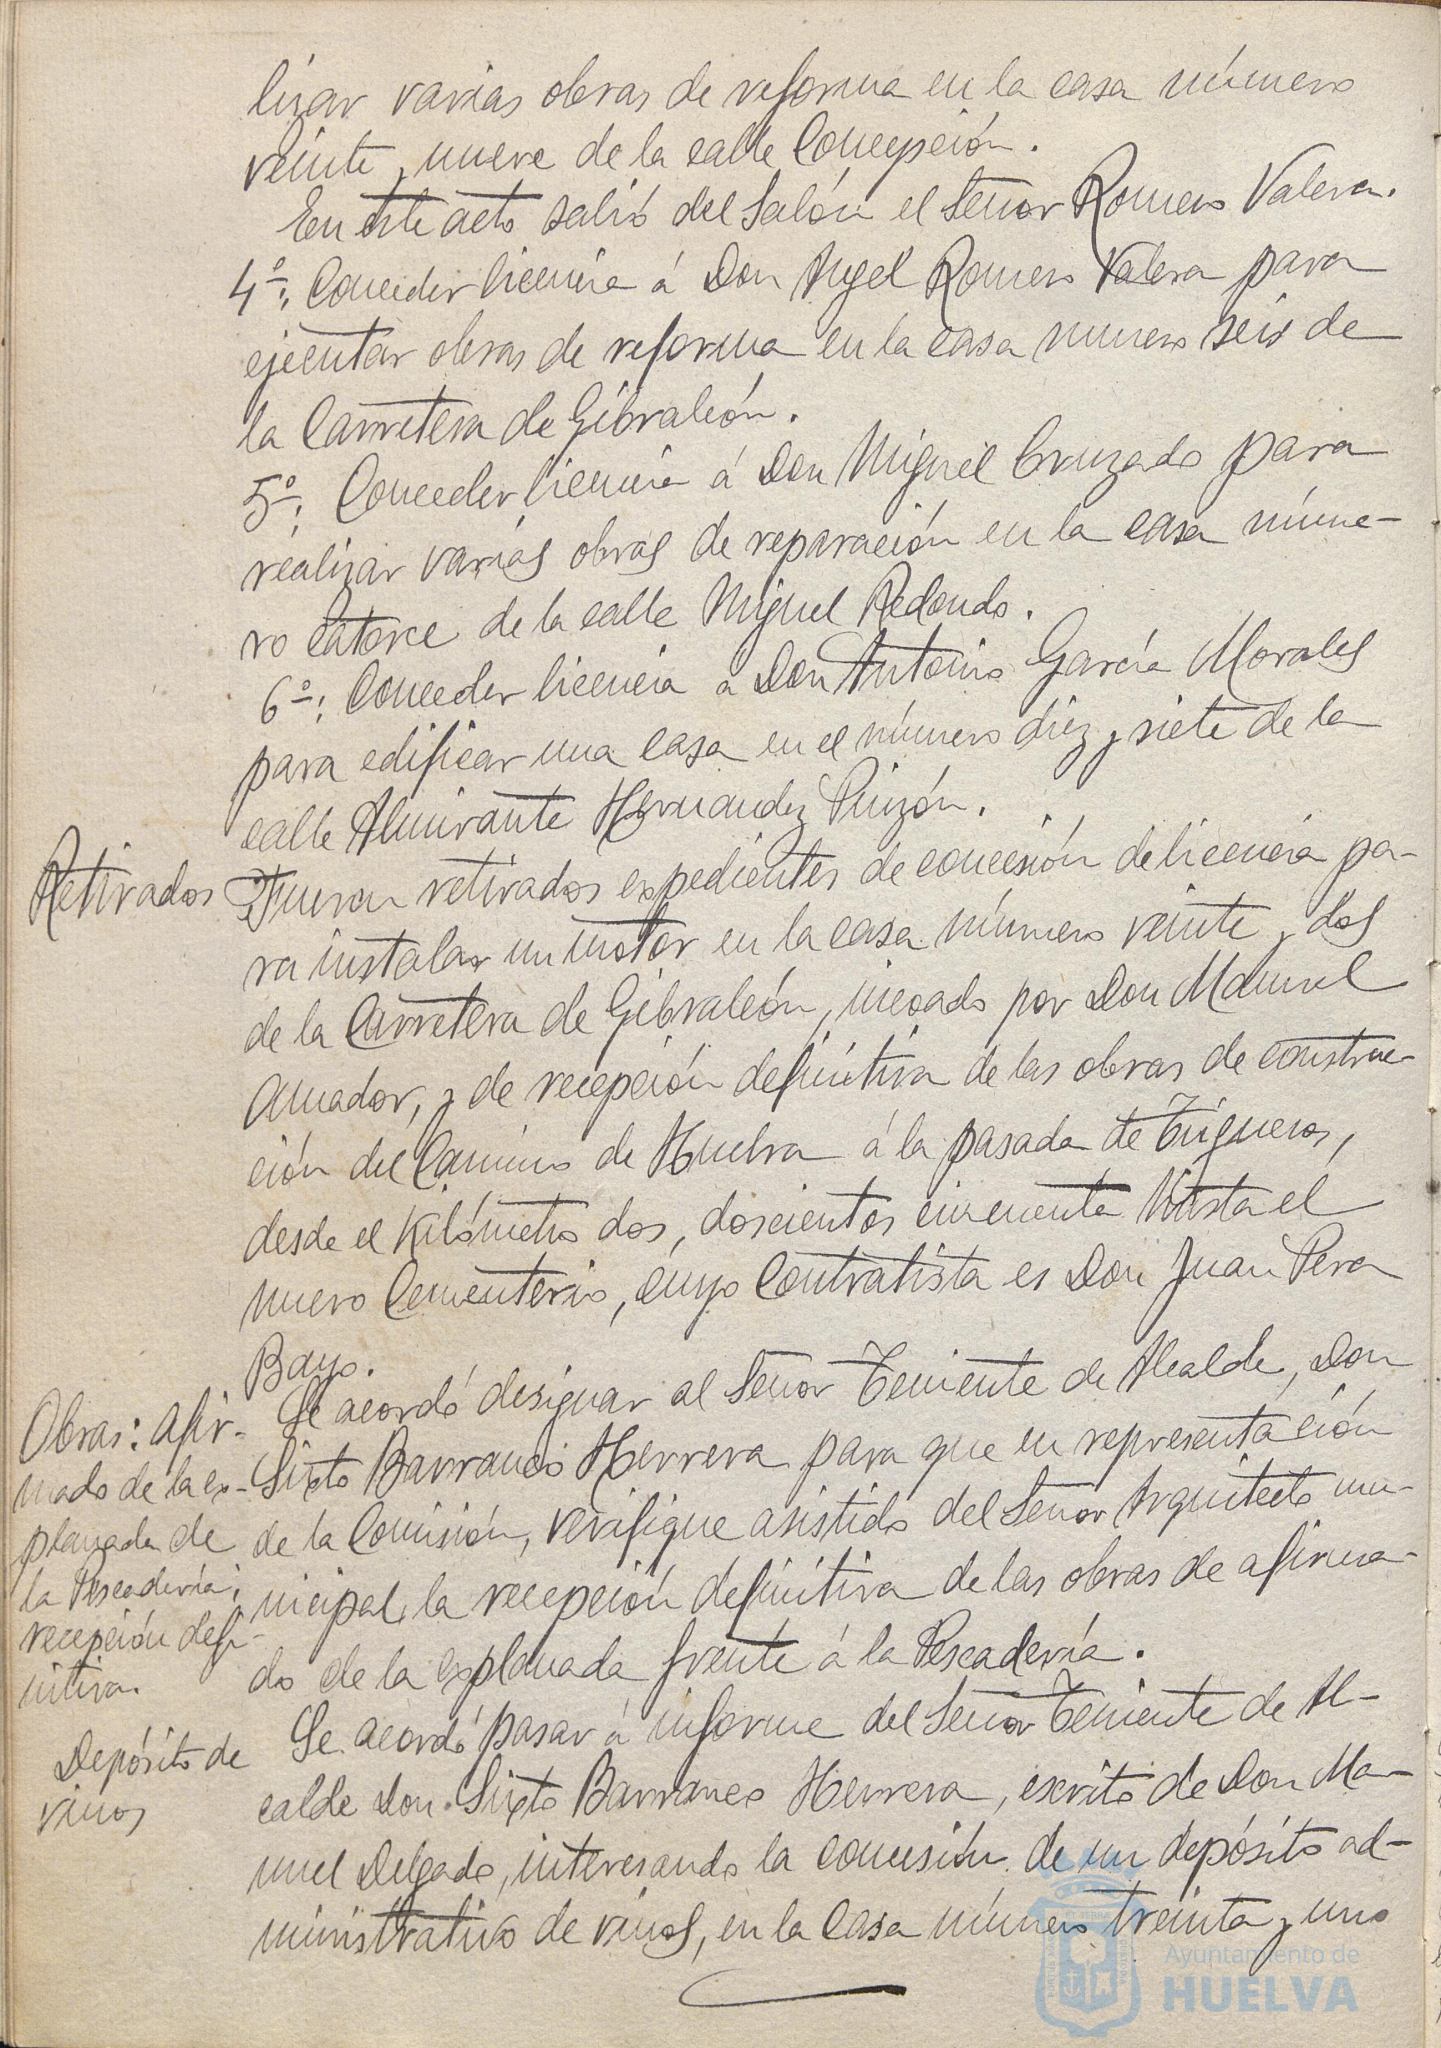 lizar varias obras de reforma en la casa número
veinte y nueve de la calle Concepción.
En este acto salió del Salón el Señor Romero Valera.
4º; Conceder licencia á Don Angel Romero Valera para
ejecutar obras de reforma en la casa numero seis de
la Carretera de Gibraleón.
5º; Conceder licencia á Don Miguel Cruzado para
realizar varias obras de reparación en la casa núme-
ro catorce de la calle Miguel Redondo.
6º; Conceder licencia á Don Antonio García Morales
para edificar una casa en el número diez y siete de la
calle Almirante Hernandez Pinzón.
Retirados
Fueron retirados expedientes de concesión de licencia pa-
ra instalar un motor en la casa número veinte y dos
de la Carretera de Gibraleón, incoado por Don Manuel
Amador, y de recepción definitiva de las obras de construc-
ción del Camino de Huelva á la pasada de Trigueros,
desde el Kilómetro dos, doscientos cincuenta hasta el
nuevo Cementerio, cuyo Contratista es Don Juan Pera
Bayo.
Obras: afir-
mado de la ex-
planada de
la Pescadería;
recepción defi-
nitiva.
Se acordó designar al Señor Teniente de Alcalde, Don
Sixto Barranco Herrera para que en representación
de la Comisión, verifique asistido del Señor Arquitecto mu-
nicipal, la recepción definitiva de las obras de afirma-
do de la explanada frente á la Pescadería.
Depósito de
vinos
Se acordó pasar á informe del Señor Teniente de Al-
calde Don Sixto Barranco Herrera, escrito de Don Ma-
nuel Delgado, interesando la concesión de un depósito ad-
ministrativo de vinos, en la Casa número treinta y uno
Ayuntamiento de
HUELVA